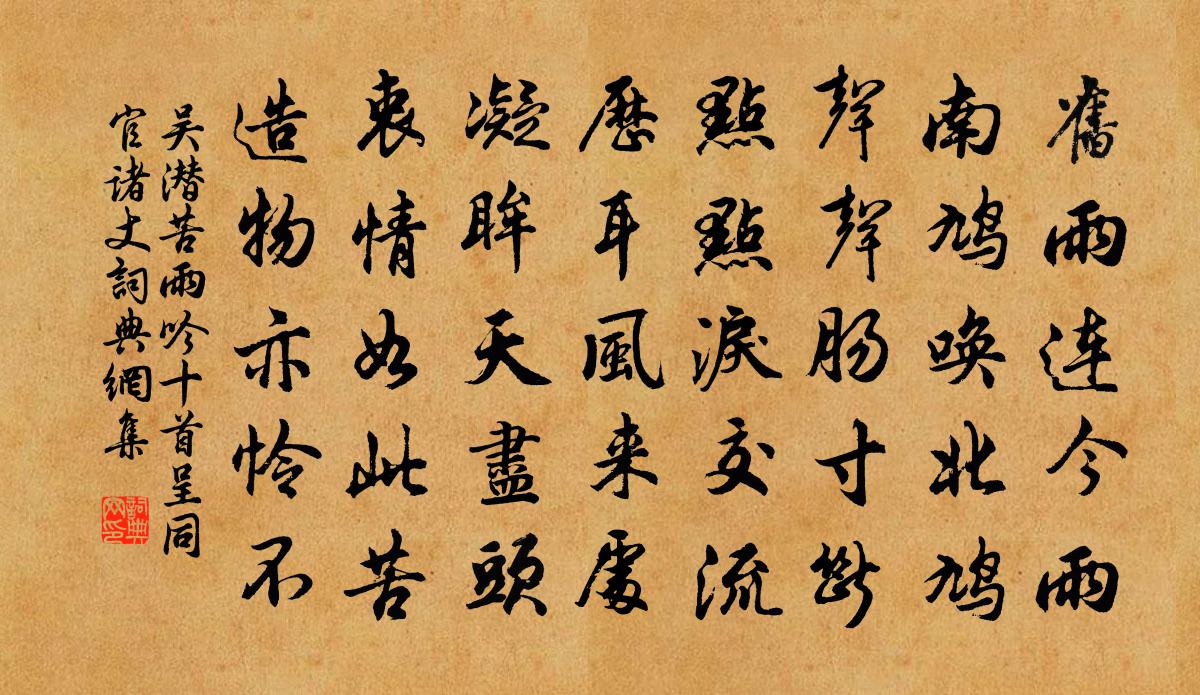 舊雨連今雨
南鳩喚北鳩
聲聲腸寸斷
點點淚交流
歷耳風来處
凝眸天盡頭
衷情如此苦
造物亦怜不
吴潜苦雨吟十首呈同
官诸丈詞典網集
詞典网印